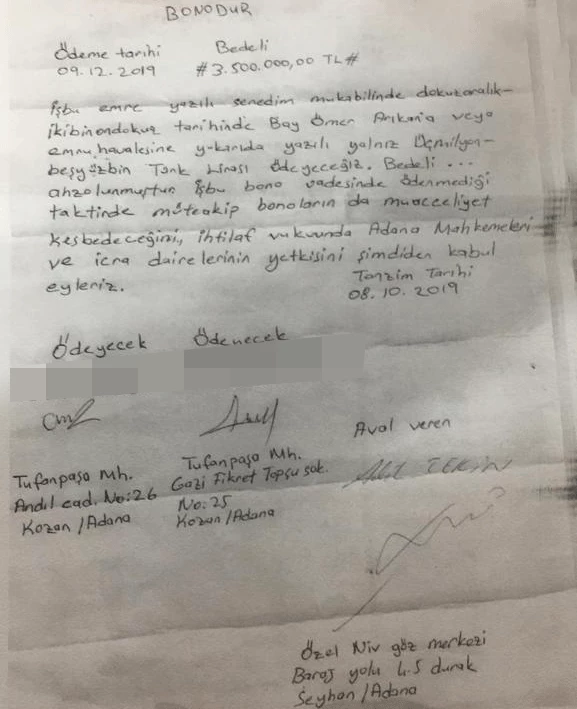 BONODUR
Ödeme tarihi Bedeli
09.12.2019 #3.500.000,00 TL#
işbu emre yazılı senedim mukabilinde dokuzaralık-
ikibinondokuz tarihinde Bay Ömer Arıkan'a veya
emruhavalesine yukarıda yazılı yalnız Üçmilyon-
beşyüzbin Türk Lirası ödeyeceğiz. Bedeli ...
ahzolunmuştur işbu bono vadesinde ödenmediği
taktinde müteakip bonoların da muacceliyet
kesbedeceğini, ihtilaf vukuunda Adana Mahkemeleri
ve icra dairelerinin yetkisini şimdiden kabul
eyleriz.
Tanzim Tarihi
08.10.2019
Ödeyecek Ödenecek
Aval veren
Tufanpaşa Mh.
Andıl cad. No:26
Kozan/Adana
Tufanpaşa Mh.
Gazi Fikret Topçu sok.
No:25
Kozan/Adana
TEKİN
Özel Niv göz merkezi
Baraj yolu 4.5 durak
Seyhan/Adana